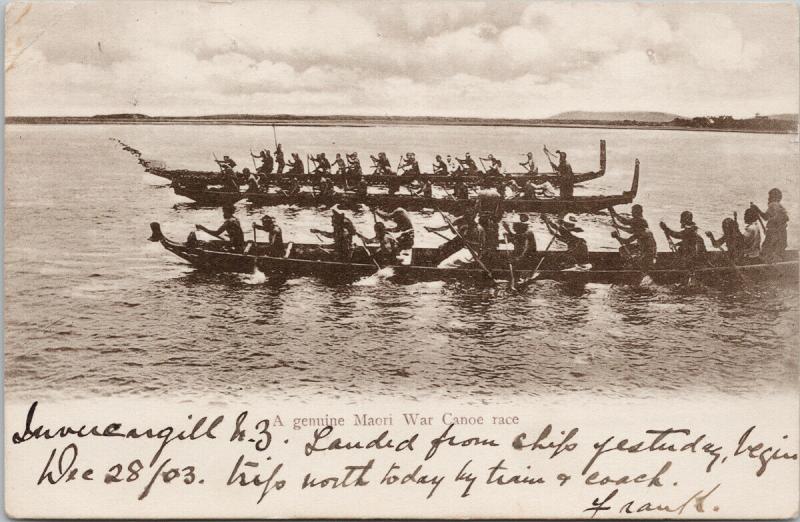 A genuine Maori War Canoe race
Invercargill N.Z. Landed from ship yesterday, begin
Dec 28/03. trip north today by train & coach.
Frank.